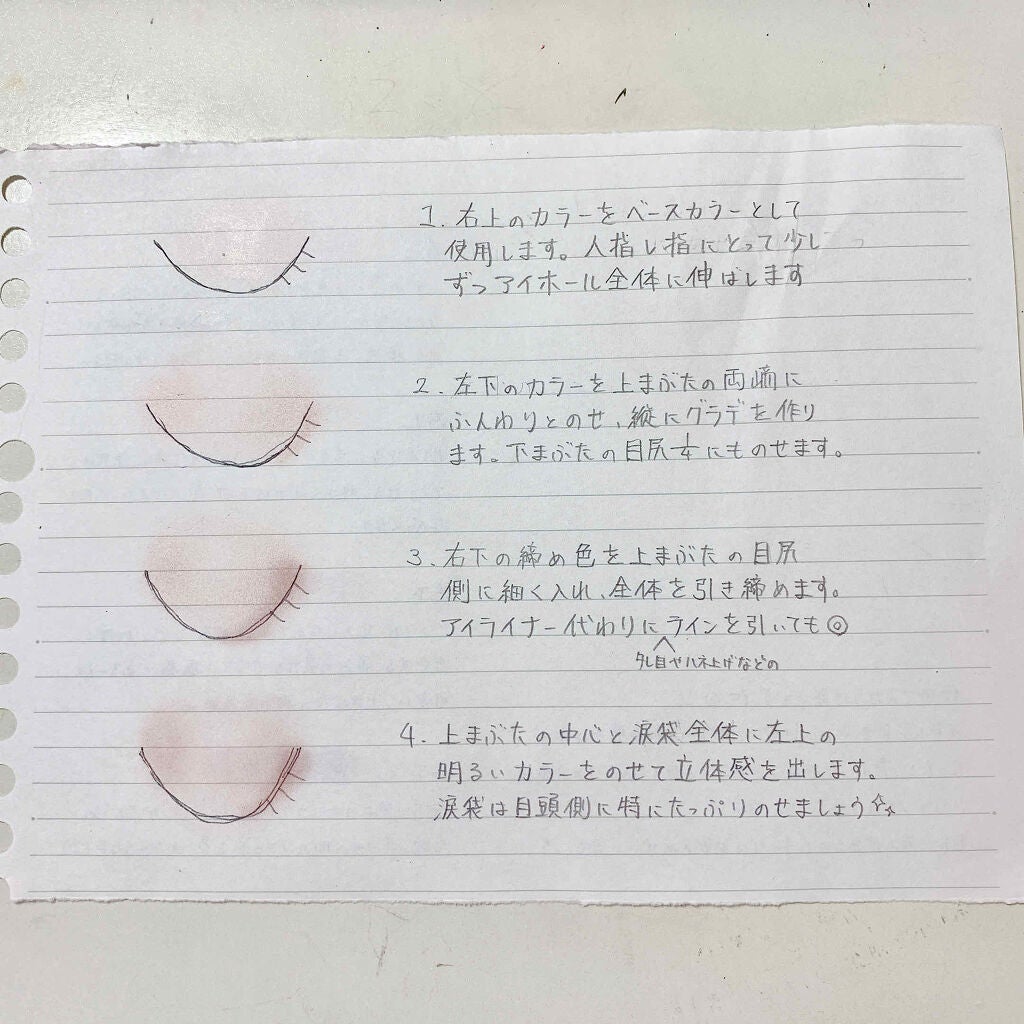 1. 右上のカラーをベースカラーとして
使用します。人指し指にとって少し
ずつアイホール全体に伸ばします
2. 左下のカラーを上まぶたの両端に
ふんわりとのせ、縦にグラデを作り
ます。下まぶたの目尻にものせます。
3. 右下の締め色を上まぶたの目尻
側に細く入れ、全体を引き締めます。
アイライナー代わりにラインを引いても◎
タレ目やハネ上げなどの
4. 上まぶたの中心と涙袋全体に左上の
明るいカラーをのせて立体感を出します。
涙袋は目頭側に特にたっぷりのせましょう☆